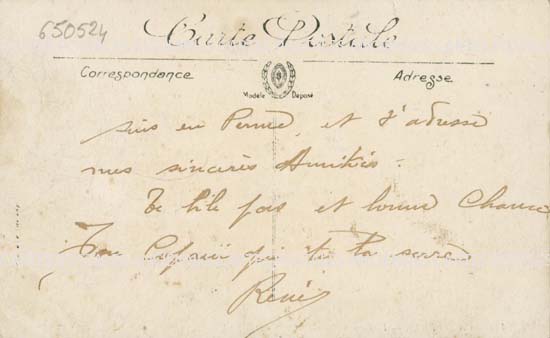 650524
Carte Postale
Correspondance
Adresse
Modèle Déposé
suis en Perme, et t'adresse
mes sincères Amitiés -
Te bile pas et bonne Chance
Ton Copain qui te la serre
René